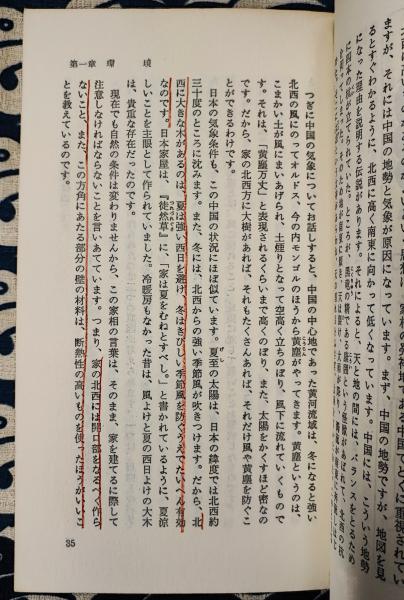 ますが、それには中国の地勢と気象が原因になっています。まず、中国の地勢ですが、地図を見
るとすぐわかるように、北西に高く南東に向かって低くなっています。中国には、こういう地勢
になった理由を説明する伝説があります。それによると、天と地の間には、バランスをとるため
第一章 環 境
つぎに中国の気象についてお話しすると、中国の中心地であった黄河流域は、冬になると強い
北西の風にのってオルドス、今の内モンゴルのほうから黄塵がやってきます。黄塵というのは、
こまかい土が風にまいあげられ、土煙りとなって空高く立ちのぼり、風下に流れていくもので
す。それは、「黄塵万丈」と表現されるくらいまで高くのぼり、また、太陽をかくすほど密なの
です。だから、家の北西方に大樹があれば、それもたくさんあれば、それだけ風や黄塵を防ぐこ
とができるわけです。
日本の気象条件も、この中国の状況にほぼ似ています。夏至の太陽は、日本の緯度では北西約
三十度のところに沈みます。また、冬には、北西からの強い季節風が吹きつけます。だから、北
西に大きな木があるのは、夏は強い西日を避け、冬はきびしい季節風を防ぐうえでたいへん有効
なのです。日本家屋は、『徒然草』に、「家は夏をむねとすべし。」と書かれているように、夏涼
しいことを主眼として作られていました。冷暖房もなかった昔は、風よけと夏の西日よけの大木
は、貴重な存在だったのです。
現在でも自然の条件は変わりませんから、この家相の言葉は、そのまま、家を建てるに際して
注意しなければならないことを言いあてています。つまり、家の北西には開口部をなるべく作ら
ないこと、また、この方角にあたる部分の壁の材料は、断熱性の高いものを使ったほうがいいこ
とを教えているのです。
35